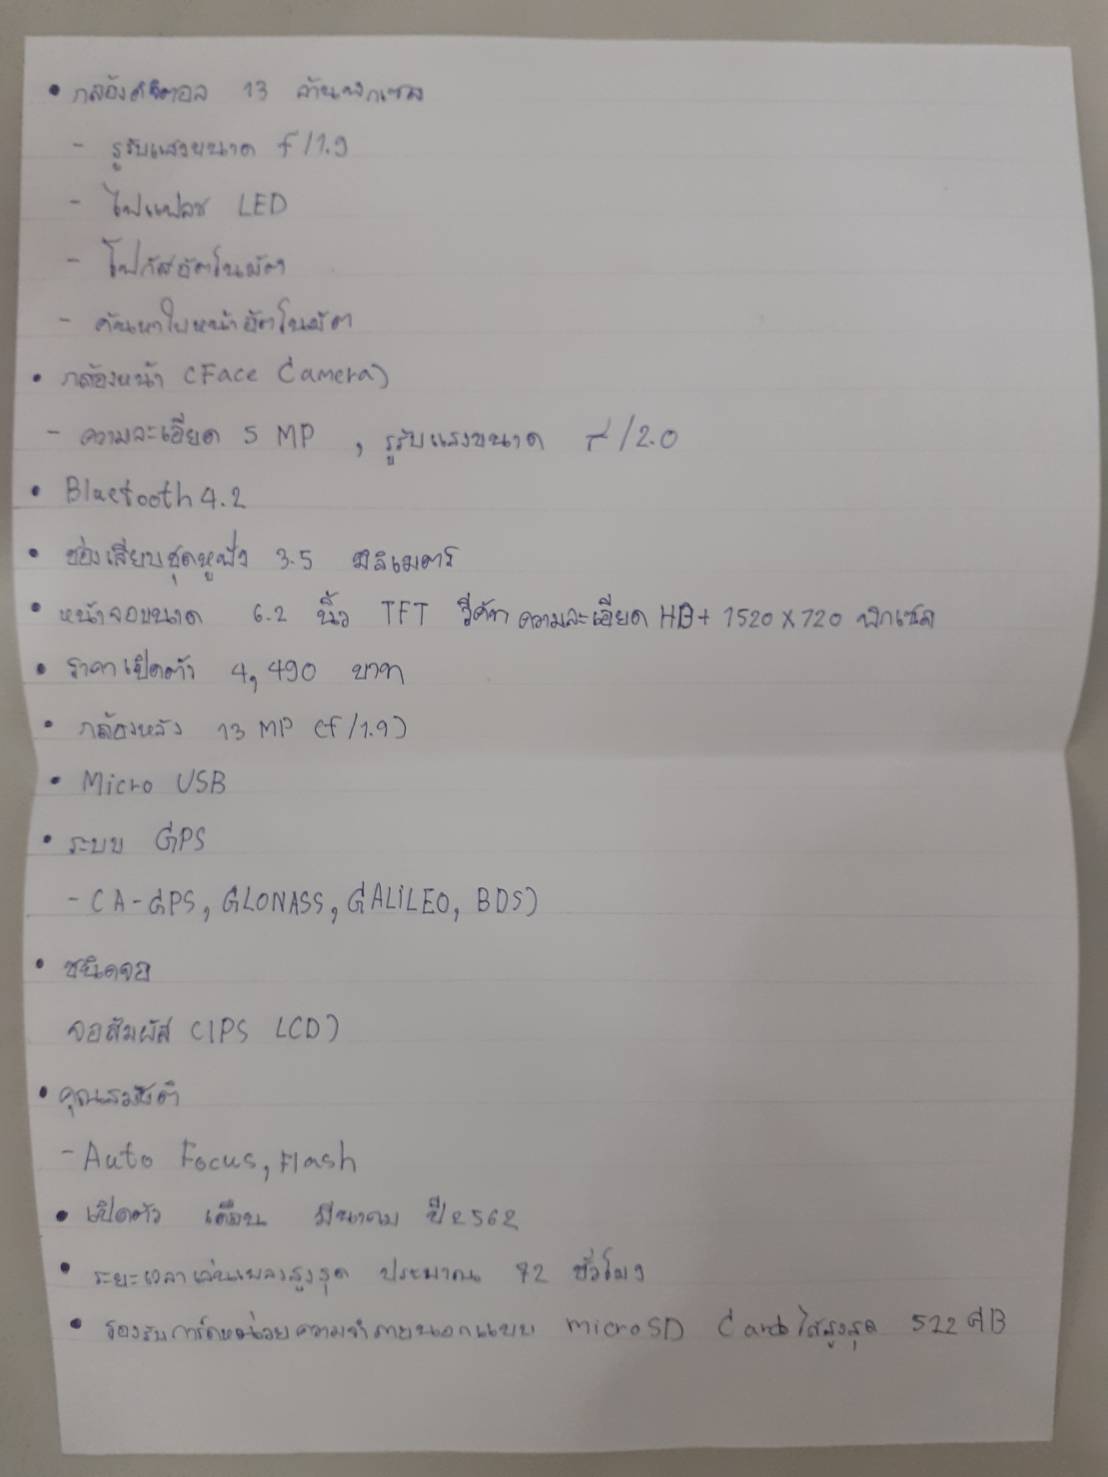 • กล้องดิจิตอล 13 ล้านพิกเซล
- รูรับแสงขนาด f/1.9
- ไฟแฟลช LED
- โฟกัสอัตโนมัติ
- ค้นหาใบหน้าอัตโนมัติ
• กล้องหน้า (Face Camera)
- ความละเอียด 5 MP , รูรับแสงขนาด f/2.0
• Bluetooth 4.2
• ช่องเสียบชุดหูฟัง 3.5 มิลิเมตร
• หน้าจอขนาด 6.2 นิ้ว TFT วีคัท ความละเอียด HD+ 1520 x 720 พิกเซล
• ราคาเปิดตัว 4,490 บาท
• กล้องหลัง 13 MP (f/1.9)
• Micro USB
• ระบบ GPS
- (A-GPS, GLONASS, GALiLEO, BDS)
• ชนิดจอ
จอสัมผัส (IPS LCD)
• คุณสมบัติ
- Auto Focus, Flash
• เปิดตัว เดือน มีนาคม ปี 2562
• ระยะเวลาเล่นเพลงสูงสุด ประมาณ 72 ชั่วโมง
• รองรับการ์ดหน่วยความจำภายนอกแบบ microSD Card ได้สูงสุด 512 GB